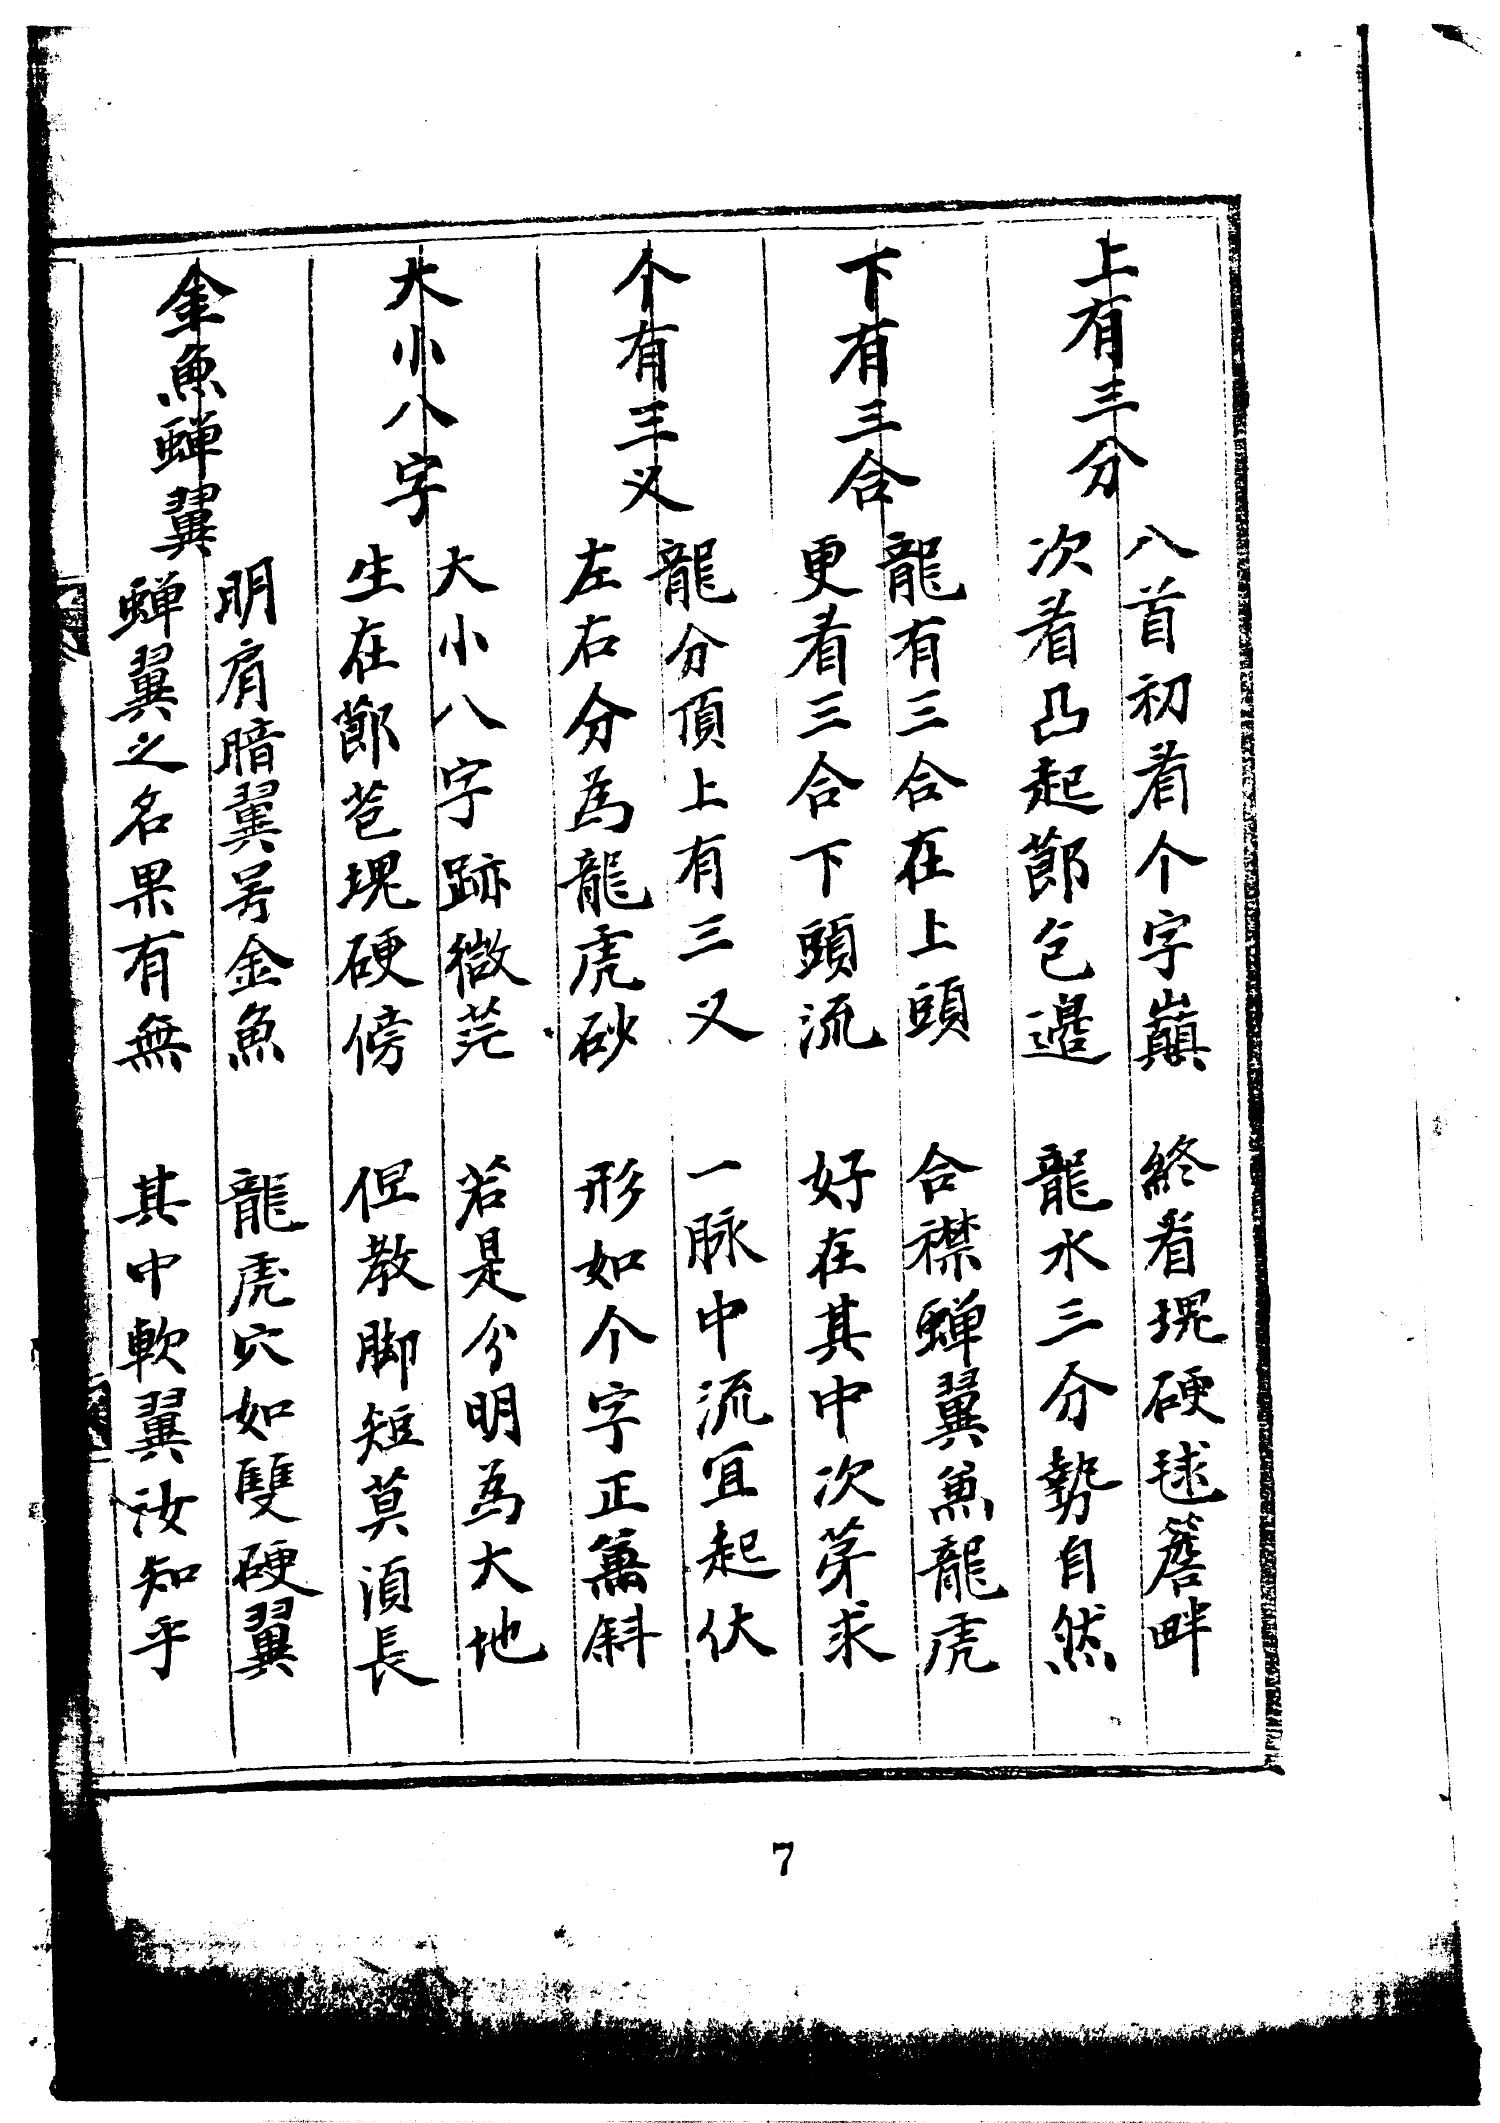 上有三分
八首初看个字巔　終看堺硬毬簷畔
次看凸起節包邊　龍水三分勢自然
下有三合
龍有三合在上頭　合襟蟬翼魚龍虎
更看三合下頭流　好在其中次第求
个有三义
龍分頂上有三义　一脉中流宜起伏
左右分為龍虎砂　形如个字正篱斜
大小八字
大小八字跡微茫　若是分明為大地
生在節苞堺硬傍　但教脚短莫須長
金魚蟬翼
明肩暗翼号金魚　龍虎穴如雙硬翼
蟬翼之名果有無　其中軟翼汝知乎
7